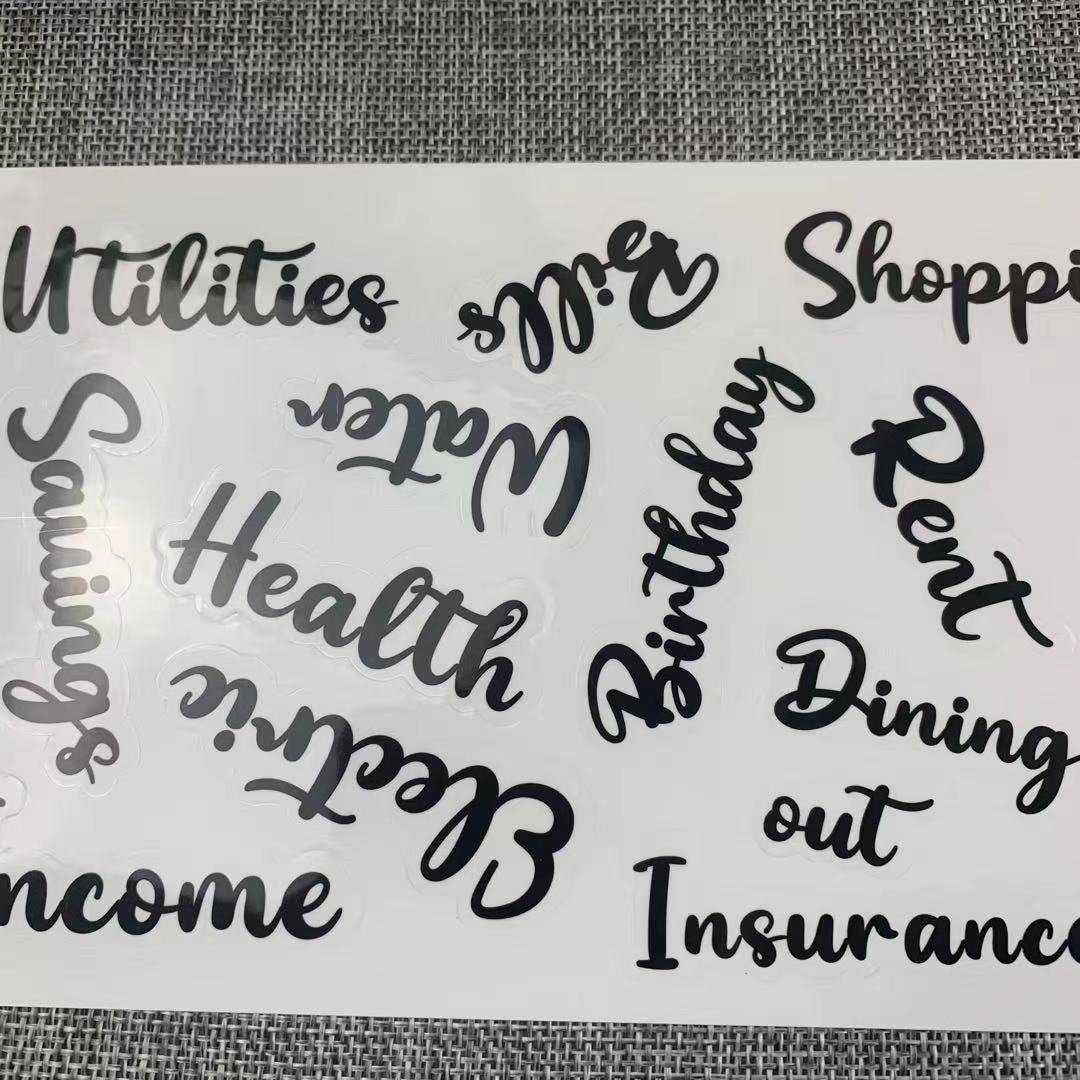 Utilities
Bills
Shoppi
Savings
Water
Birthday
Rent
Health
Electric
Dining
out
ncome
Insuranc